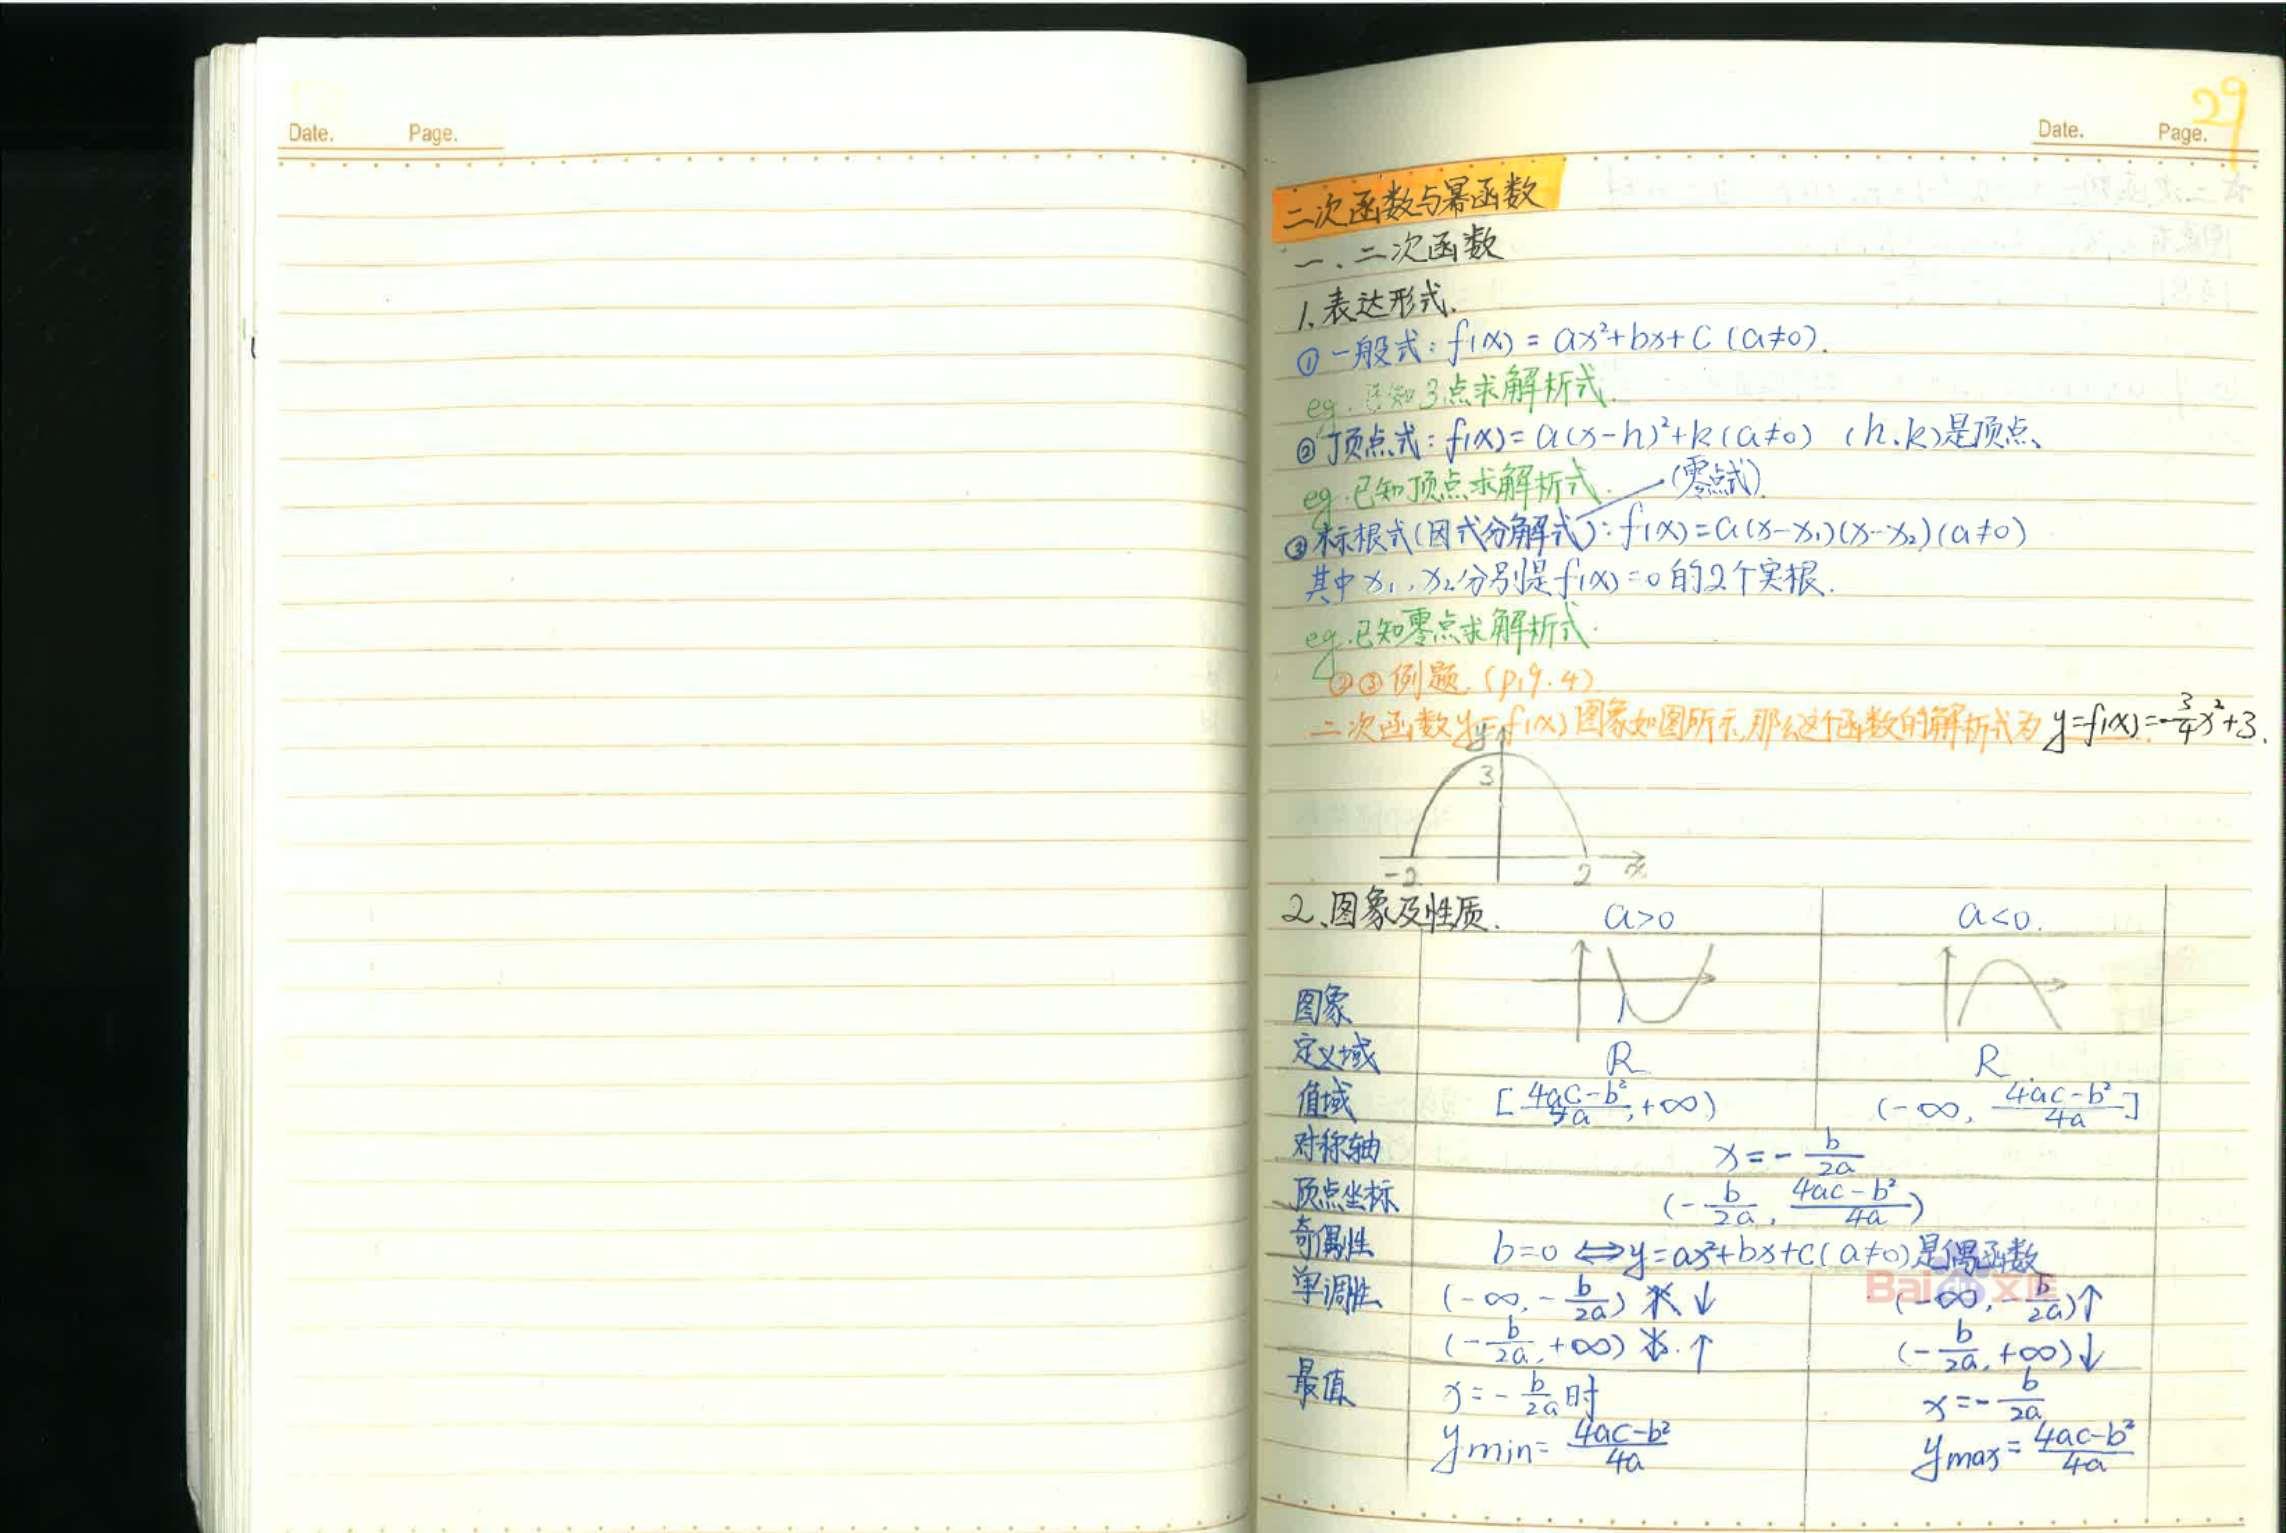 Date. Page.
29
Date. Page.
二次函数与幂函数
一、二次函数
1、表达形式.
① 一般式：f(x) = ax²+bx+c (a≠0).
eg. 已知3点求解析式.
② 顶点式：f(x)=a(x-h)²+k(a≠0) (h.k)是顶点、
eg.已知顶点求解析式. (零点式).
③标根式(因式分解式)：f(x)=a(x-x₁)(x-x₂)(a≠0)
其中x₁,x₂分别是f(x)=0的2个实根.
eg.已知零点求解析式.
②③例题.(P19.4).
二次函数y=f(x)图象如图所示,那么这个函数的解析式为 y=f(x)=-3/4x²+3.
y
3
-2 2 x
2、图象及性质. a>0 a<0.
图象
定义域 R R.
值域 [4ac-b²/4a,+∞) (-∞,4ac-b²/4a]
对称轴 x=-b/2a
顶点坐标 (-b/2a,4ac-b²/4a)
奇偶性 b=0⇔y=ax²+bx+c(a≠0)是偶函数
单调性 (-∞,-b/2a)↓ (-∞,-b/2a)↑
(-b/2a,+∞)↑ (-b/2a,+∞)↓
最值 x=-b/2a时 x=-b/2a
ymin=4ac-b²/4a ymax=4ac-b²/4a
Bai文库